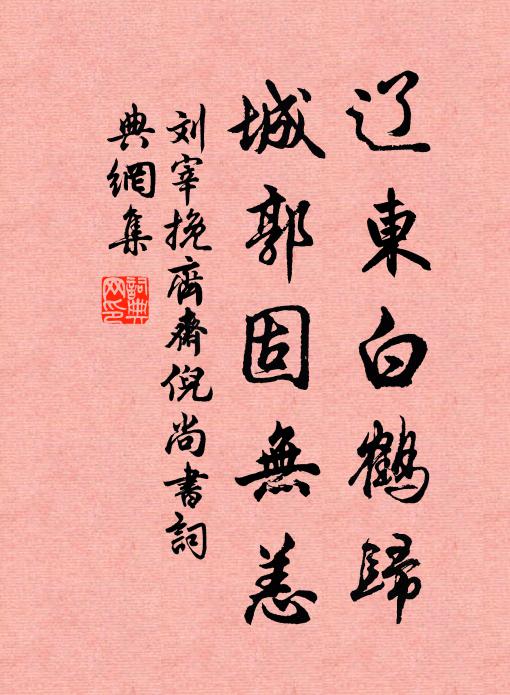 辽東白鶴歸
城郭固無恙
刘宰挽齊齋倪尚書詞
典網集
詞典
网印